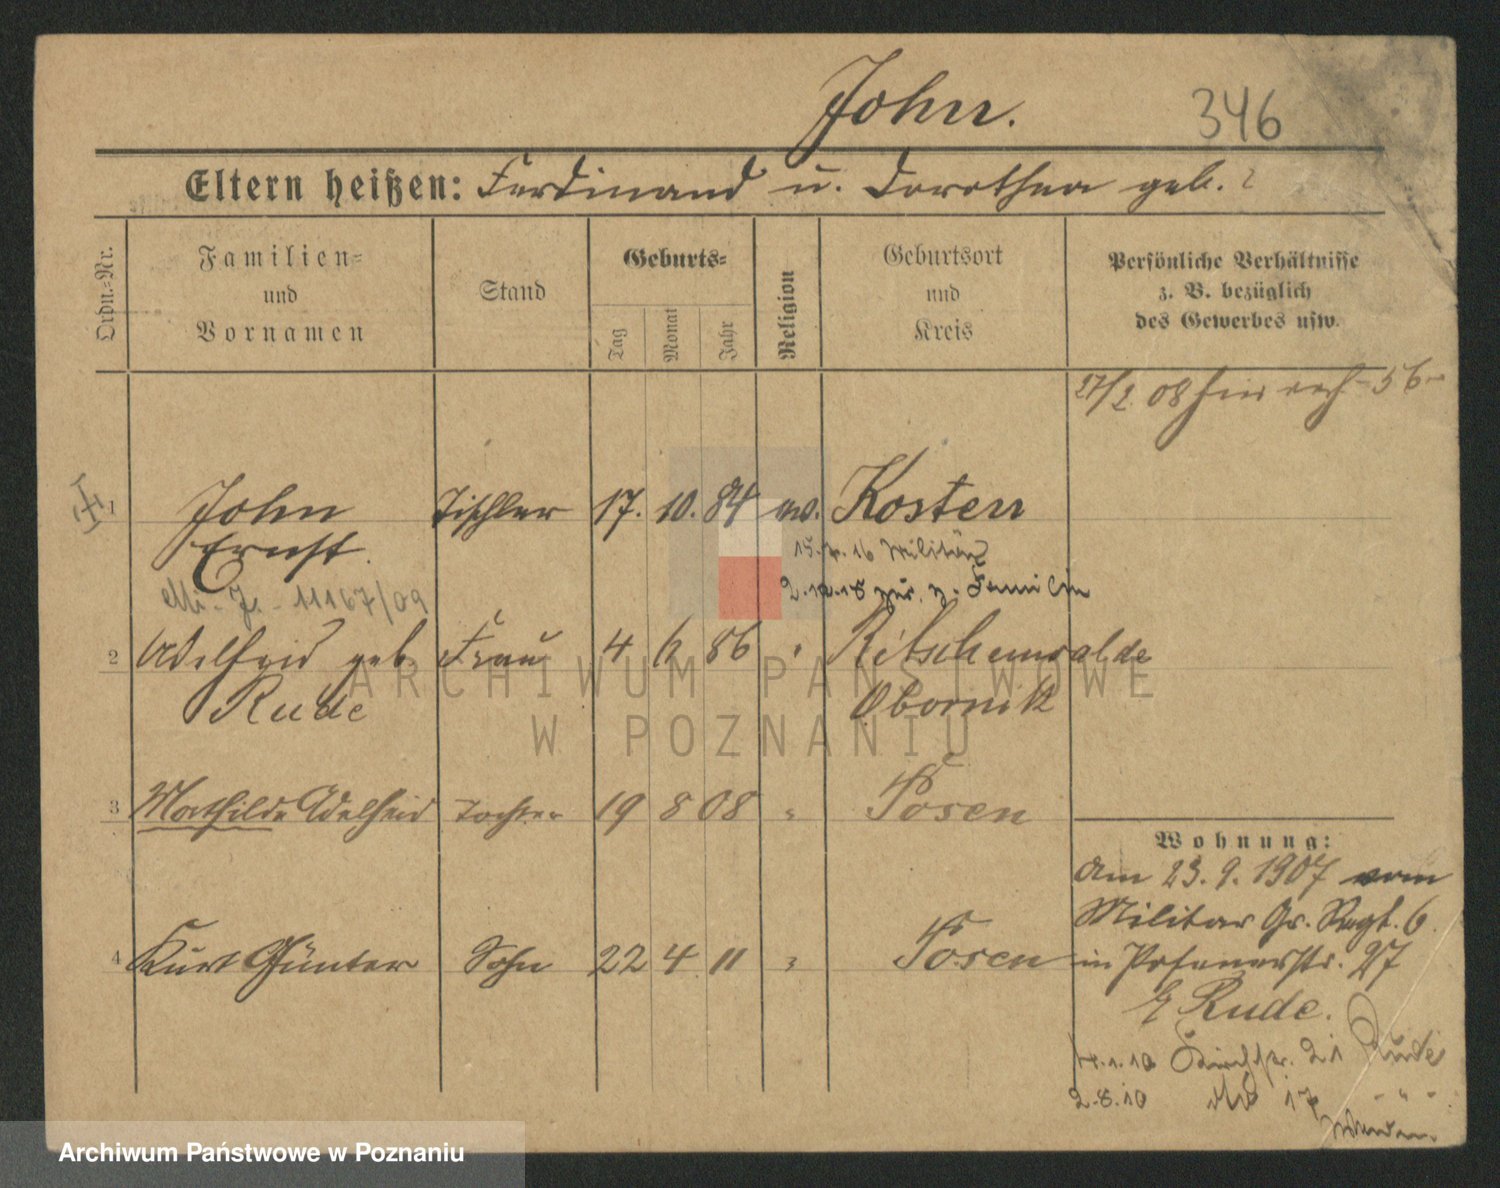 John.
346
Eltern heißen: Ferdinand u. Dorothea geb. ?
Ordn.-Nr.
Familien-
und
Vornamen
Stand
Geburts-
Tag
Monat
Jahr
Religion
Geburtsort
und
Kreis
Persönliche Verhältnisse
z. B. bezüglich
des Gewerbes usw.
27/2 08 56
1 John Tischler 17. 10. 84 ev. Kosten
Ernst.
16 Militär
11167/09
2.12.18 zur. z. Familie
2 Adelheid geb. Frau 4 6 86 " Ritschenwalde
Rude Obornik
3 Mathilde Adelheid Tochter 19 8 08 " Posen
Wohnung:
Am 23. 9. 1907 vom
Militär Gr. Regt. 6
4 Kurt Günter Sohn 22 4 11 " Posen
in Posenerstr. 27
b Rude.
4.1.10 21 Rude
2.8.10 17 - " -
ARCHIWUM PAŃSTWOWE
W POZNANIU
Archiwum Państwowe w Poznaniu